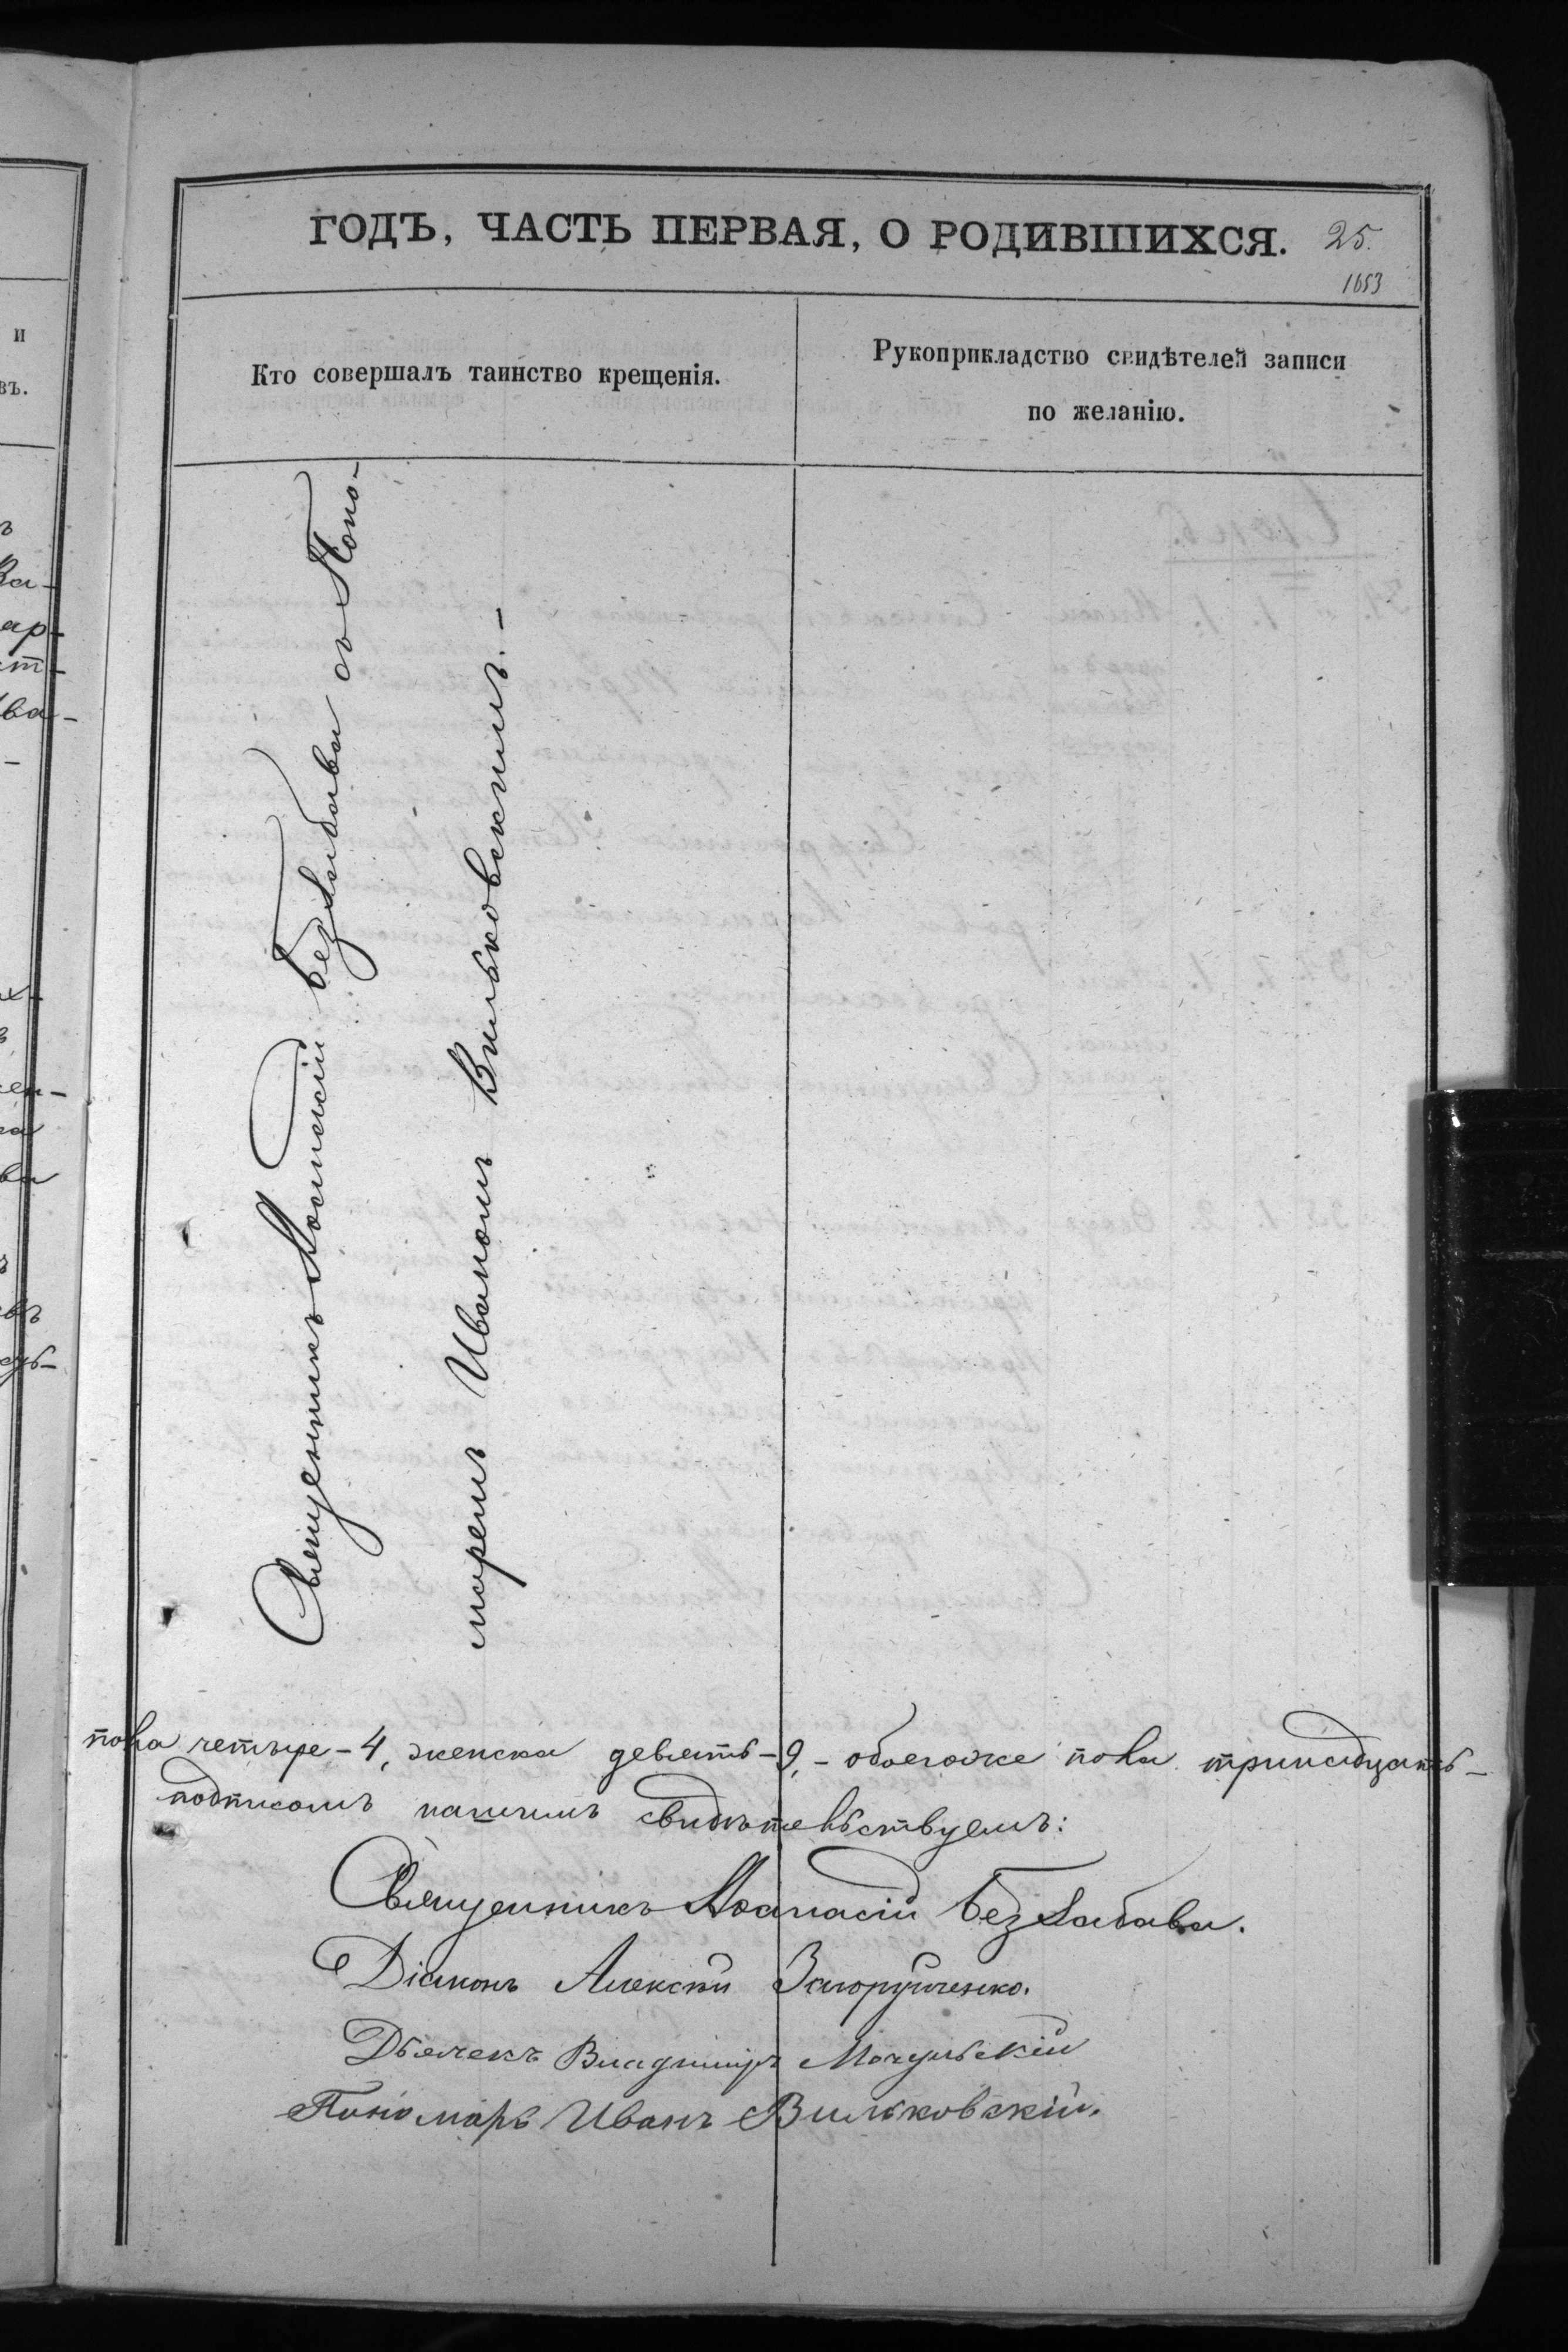 ГОДЪ, ЧАСТЬ ПЕРВАЯ, О РОДИВШИХСЯ. 25.
1653
Кто совершалъ таинство крещенія.
Рукоприкладство свидѣтелей записи
по желанію.
Священникъ Аѳанасій Беззабава съ Поно-
маремъ Иваномъ Вильковскимъ.-
пола четыре - 4, женска девять - 9, - обоегоже пола тринадцать -
подписомъ нашимъ свидѣтельствуемъ:
Священникъ Аѳанасій Беззабава.
Діаконъ Алексѣй Загоруйченко.
Дьячекъ Владиміръ Мочульскій
Пономарь Иванъ Вильковскій.